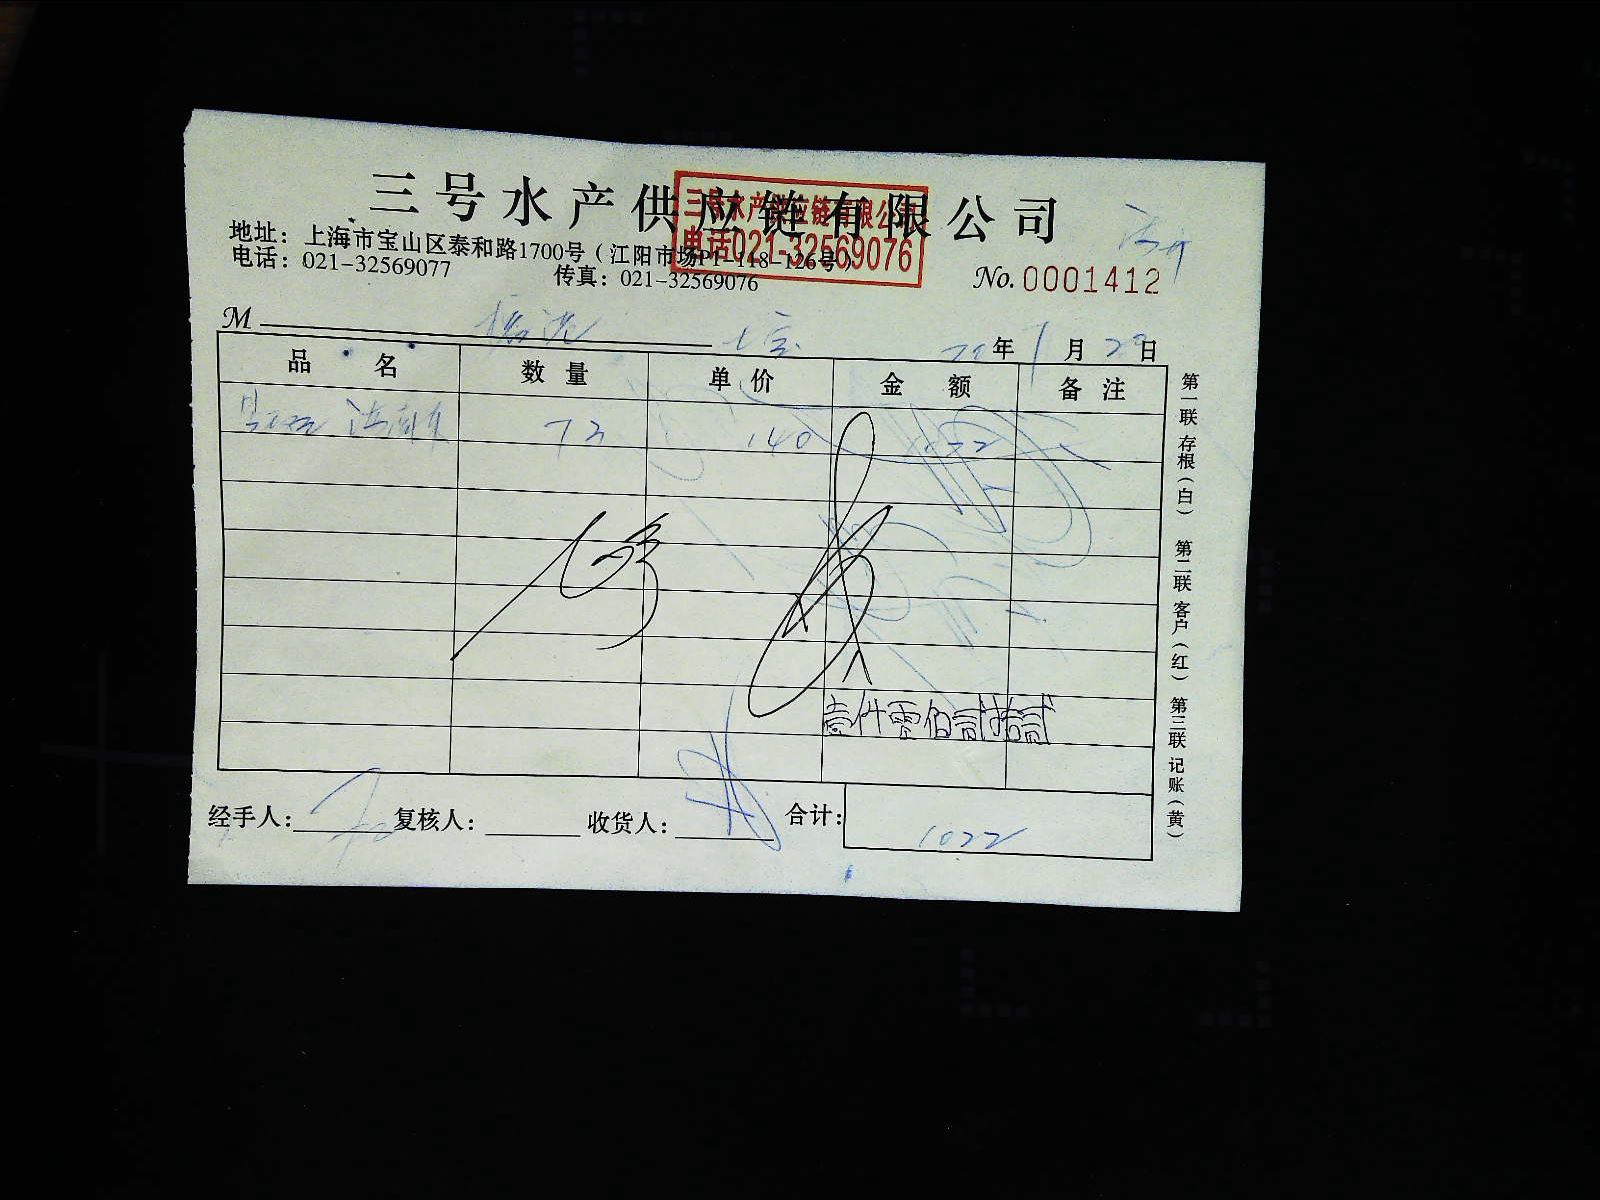 三号水产供应链有限公司
三号水产供应链有限公司
电话021-32569076
地址：上海市宝山区泰和路1700号（江阳市场P1-118-126号）
电话：021-32569077 传真：021-32569076
No. 0001412
M
年 月 日
品名 数量 单价 金额 备注
73 140 1022
壹仟零佰贰拾贰
经手人： 复核人： 收货人： 合计： 1022
第一联 存根（白） 第二联 客户（红） 第三联 记账（黄）